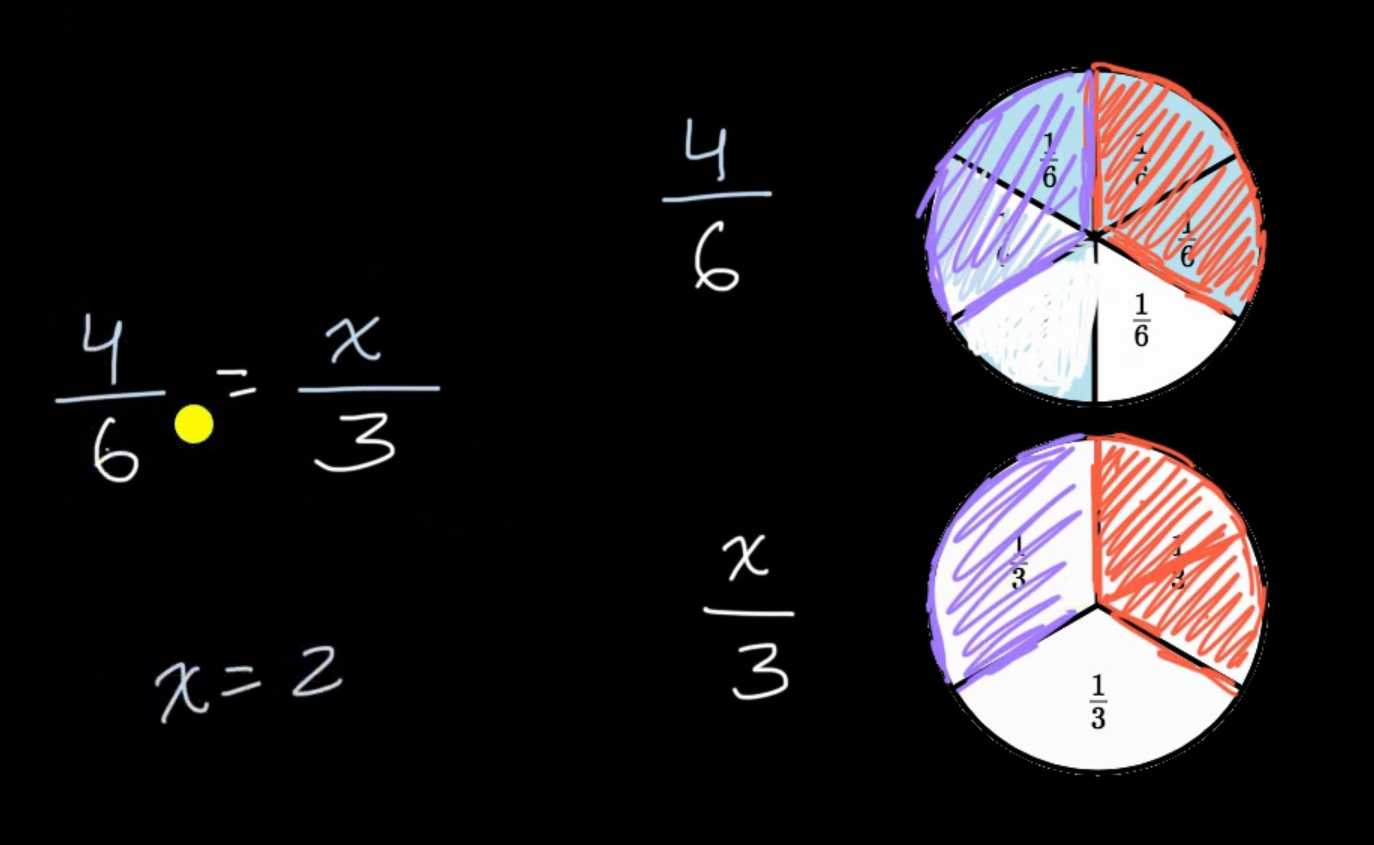 4/6 = x/3
x = 2
4/6
1/6 1/6
1/6
1/6
x/3
1/3 1/3
1/3